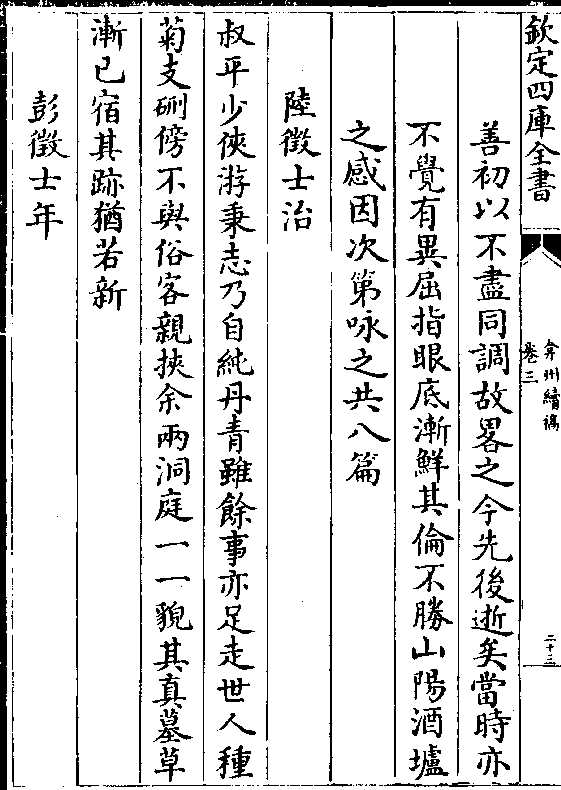 欽定四庫全書
弇州續稿
卷三
二十三
善初以不盡同調故畧之今先後逝矣當時亦
不覺有異屈指眼底漸鮮其倫不勝山陽酒壚
之感因次第咏之共八篇
陸徵士治
叔平少俠游秉志乃自純丹青雖餘事亦足走世人種
菊支硎傍不與俗客親挾余兩洞庭一一貌其真墓草
漸已宿其跡猶若新
彭徵士年